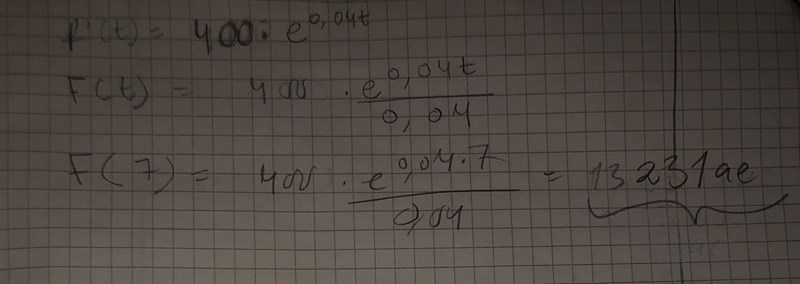 f'(t) = 400 · e^0,04t
F(t) = 400 · e^0,04t / 0,04
F(7) = 400 · e^0,04·7 / 0,04 = 13231ae